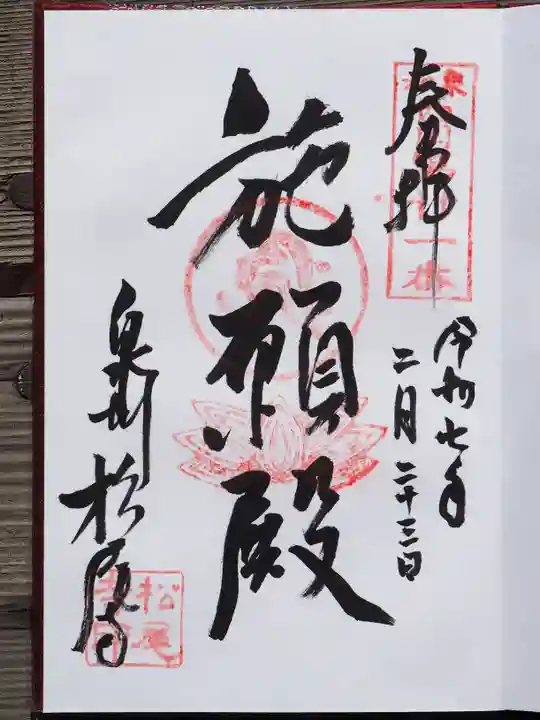 奉拝
令和七年
二月二十三日
施願殿
泉州
松尾寺
松尾